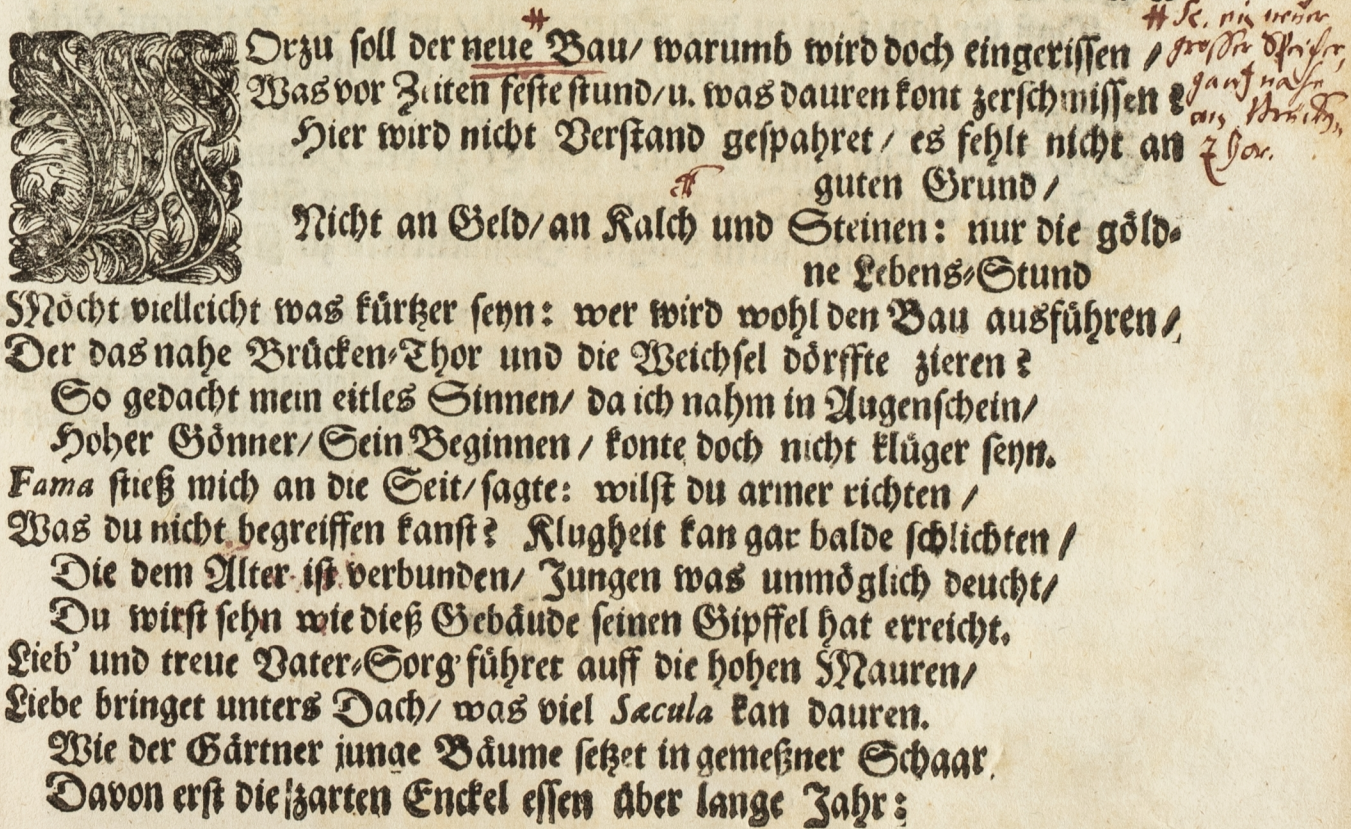 WOrzu soll der neue Bau/ warumb wird doch eingerissen /
Was vor Zeiten feste stund/ u. was dauren kont zerschmissen?
Hier wird nicht Verstand gespahret/ es fehlt nicht an
guten Grund/
Nicht an Geld/ an Kalch und Steinen: nur die göld-
ne Lebens-Stund
Möcht vielleicht was kürtzer seyn: wer wird wohl den Bau ausführen/
Der das nahe Brücken-Thor und die Weichsel dörffte zieren?
So gedacht mein eitles Sinnen/ da ich nahm in Augenschein/
Hoher Gönner/ Sein Beginnen/ konte doch nicht klüger seyn.
Fama stieß mich an die Seit/ sagte: wilst du armer richten/
Was du nicht begreiffen kanst? Klugheit kan gar balde schlichten/
Die dem Alter ist verbunden/ Jungen was unmöglich deucht/
Du wirst sehn wie dieß Gebäude seinen Gipffel hat erreicht.
Lieb' und treue Vater-Sorg' führet auff die hohen Mauren/
Liebe bringet unters Dach/ was viel Sæcula kan dauren.
Wie der Gärtner junge Bäume setzet in gemeßner Schaar
Davon erst die zarten Enckel essen über lange Jahr:
# Sc. ein neuer
grosser Speicher,
gantz nahe
am Brücken
Thor.